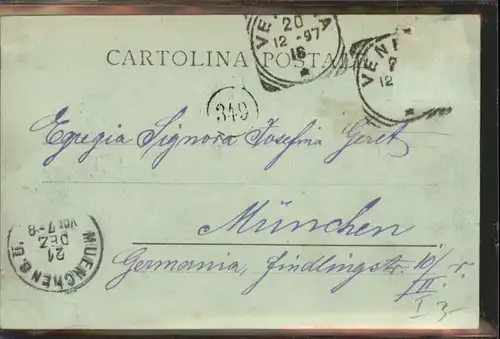 VENEZIA
20
12 -97
16
VEN
12
CARTOLINA POSTALE
349
Egregia Signora Josefina Geret
München
Germania, Findlingstr. 10/II r.
I 3-
MUENCHEN B.D.
21
DEZ
VOR 7-8